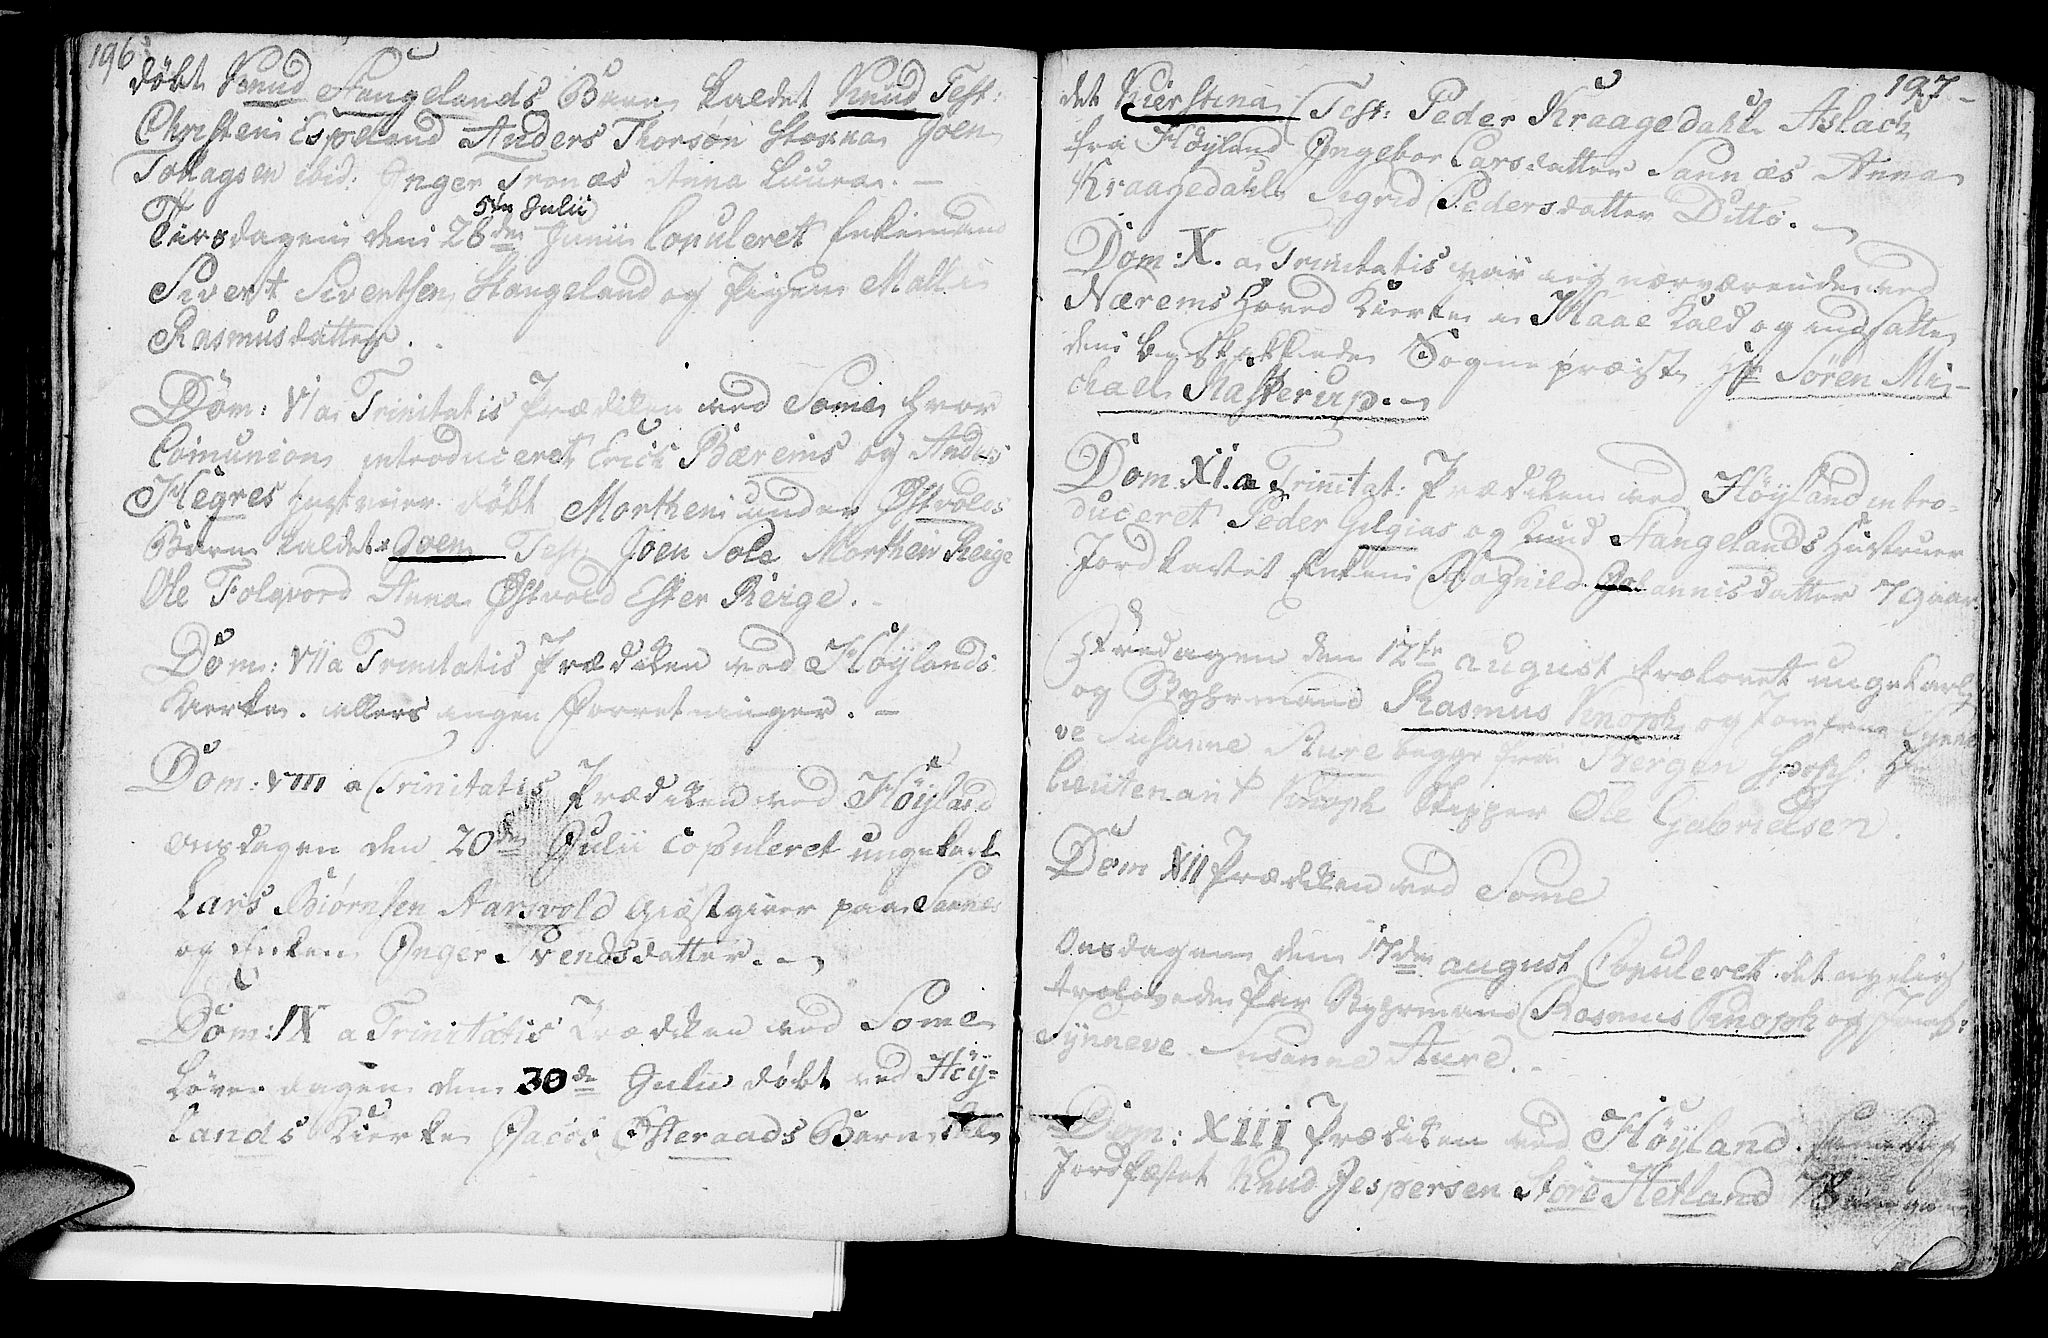 196
döbt Knud Stangelands Barn kaldet Knud Test:
Christen Espeland Anders Thorsön Stokka Joen
Tollagsen ibid: Inger Tronæs Anna Luura. —
5te Julii
Tirsdagen den 28de Junii Copuleret Enkemand
Sivert Sivertsen Stangeland og Pigen Malli
Rasmusdatter.
Dom: VI a Trinitatis Prædiken ved Some hvor
Comunion introduceret Erick Bærems og Anders
Hegres Hustruer döbt Morthen under Østvolds
Barn kaldet Joen Test: Joen Sole Morthen Reige
Ole Folqvord Anna Østvold Ester Reige. —
Dom: VII a Trinitatis Prædiken ved Höylands
Kierke. ellers ingen Forretninger. —
Dom: VIII a Trinitatis Prædiken ved Höyland
Onsdagen den 20de Julii Copuleret ungekarl
Lars Biörnsen Aarsvold Giæstgiver paa Sannes
og Enken Inger Svendsdatter. —
Dom: IX a Trinitatis Prædiken ved Some
Löverdagen den 30de Julii döbt ved Höy=
lands Kierke Jacob Østeraads Barn kal
197
det Kierstina Test: Peder Kraagedahl Aslach
fra Höyland Ingebor Larsdatter Sannæs Anna
Kraagedahl Sigrid Pedersdatter Ditto. —
Dom: X. a Trinitatis var ieg nærværende ved
Nærems Hoved Kierke i Haae Kald og indsatte
den beskikkede Sogne præst Hr Sören Mi=
chael Kasterup. —
Dom: XI. a Trinitat: Prædiken ved Höyland intro=
duceret Peder Gilgias og Knud Stangelands Hustruer
Jordkastet Enken Ragnild Johannisdatter 79 aar.
Fredagen den 12te august troloved ungekarl
og Styrmand Rasmus Knoph og Jomfrue Synne
ve Susanne Sture begge fra Bergen Spons: Hr
Lieutenant Knoph Skipper Ole Gabrielsen.
Dom XII Prædiken ved Some
Onsdagen den 17de august Copuleret det nyelig
trolovede Par Styrmand Rasmus Knoph og Jomf:
Synneve Susanne Sture. —
Dom: XIII Prædiken ved Höyland.
Jordfæstet Knud Jespersen Store Hetland 78